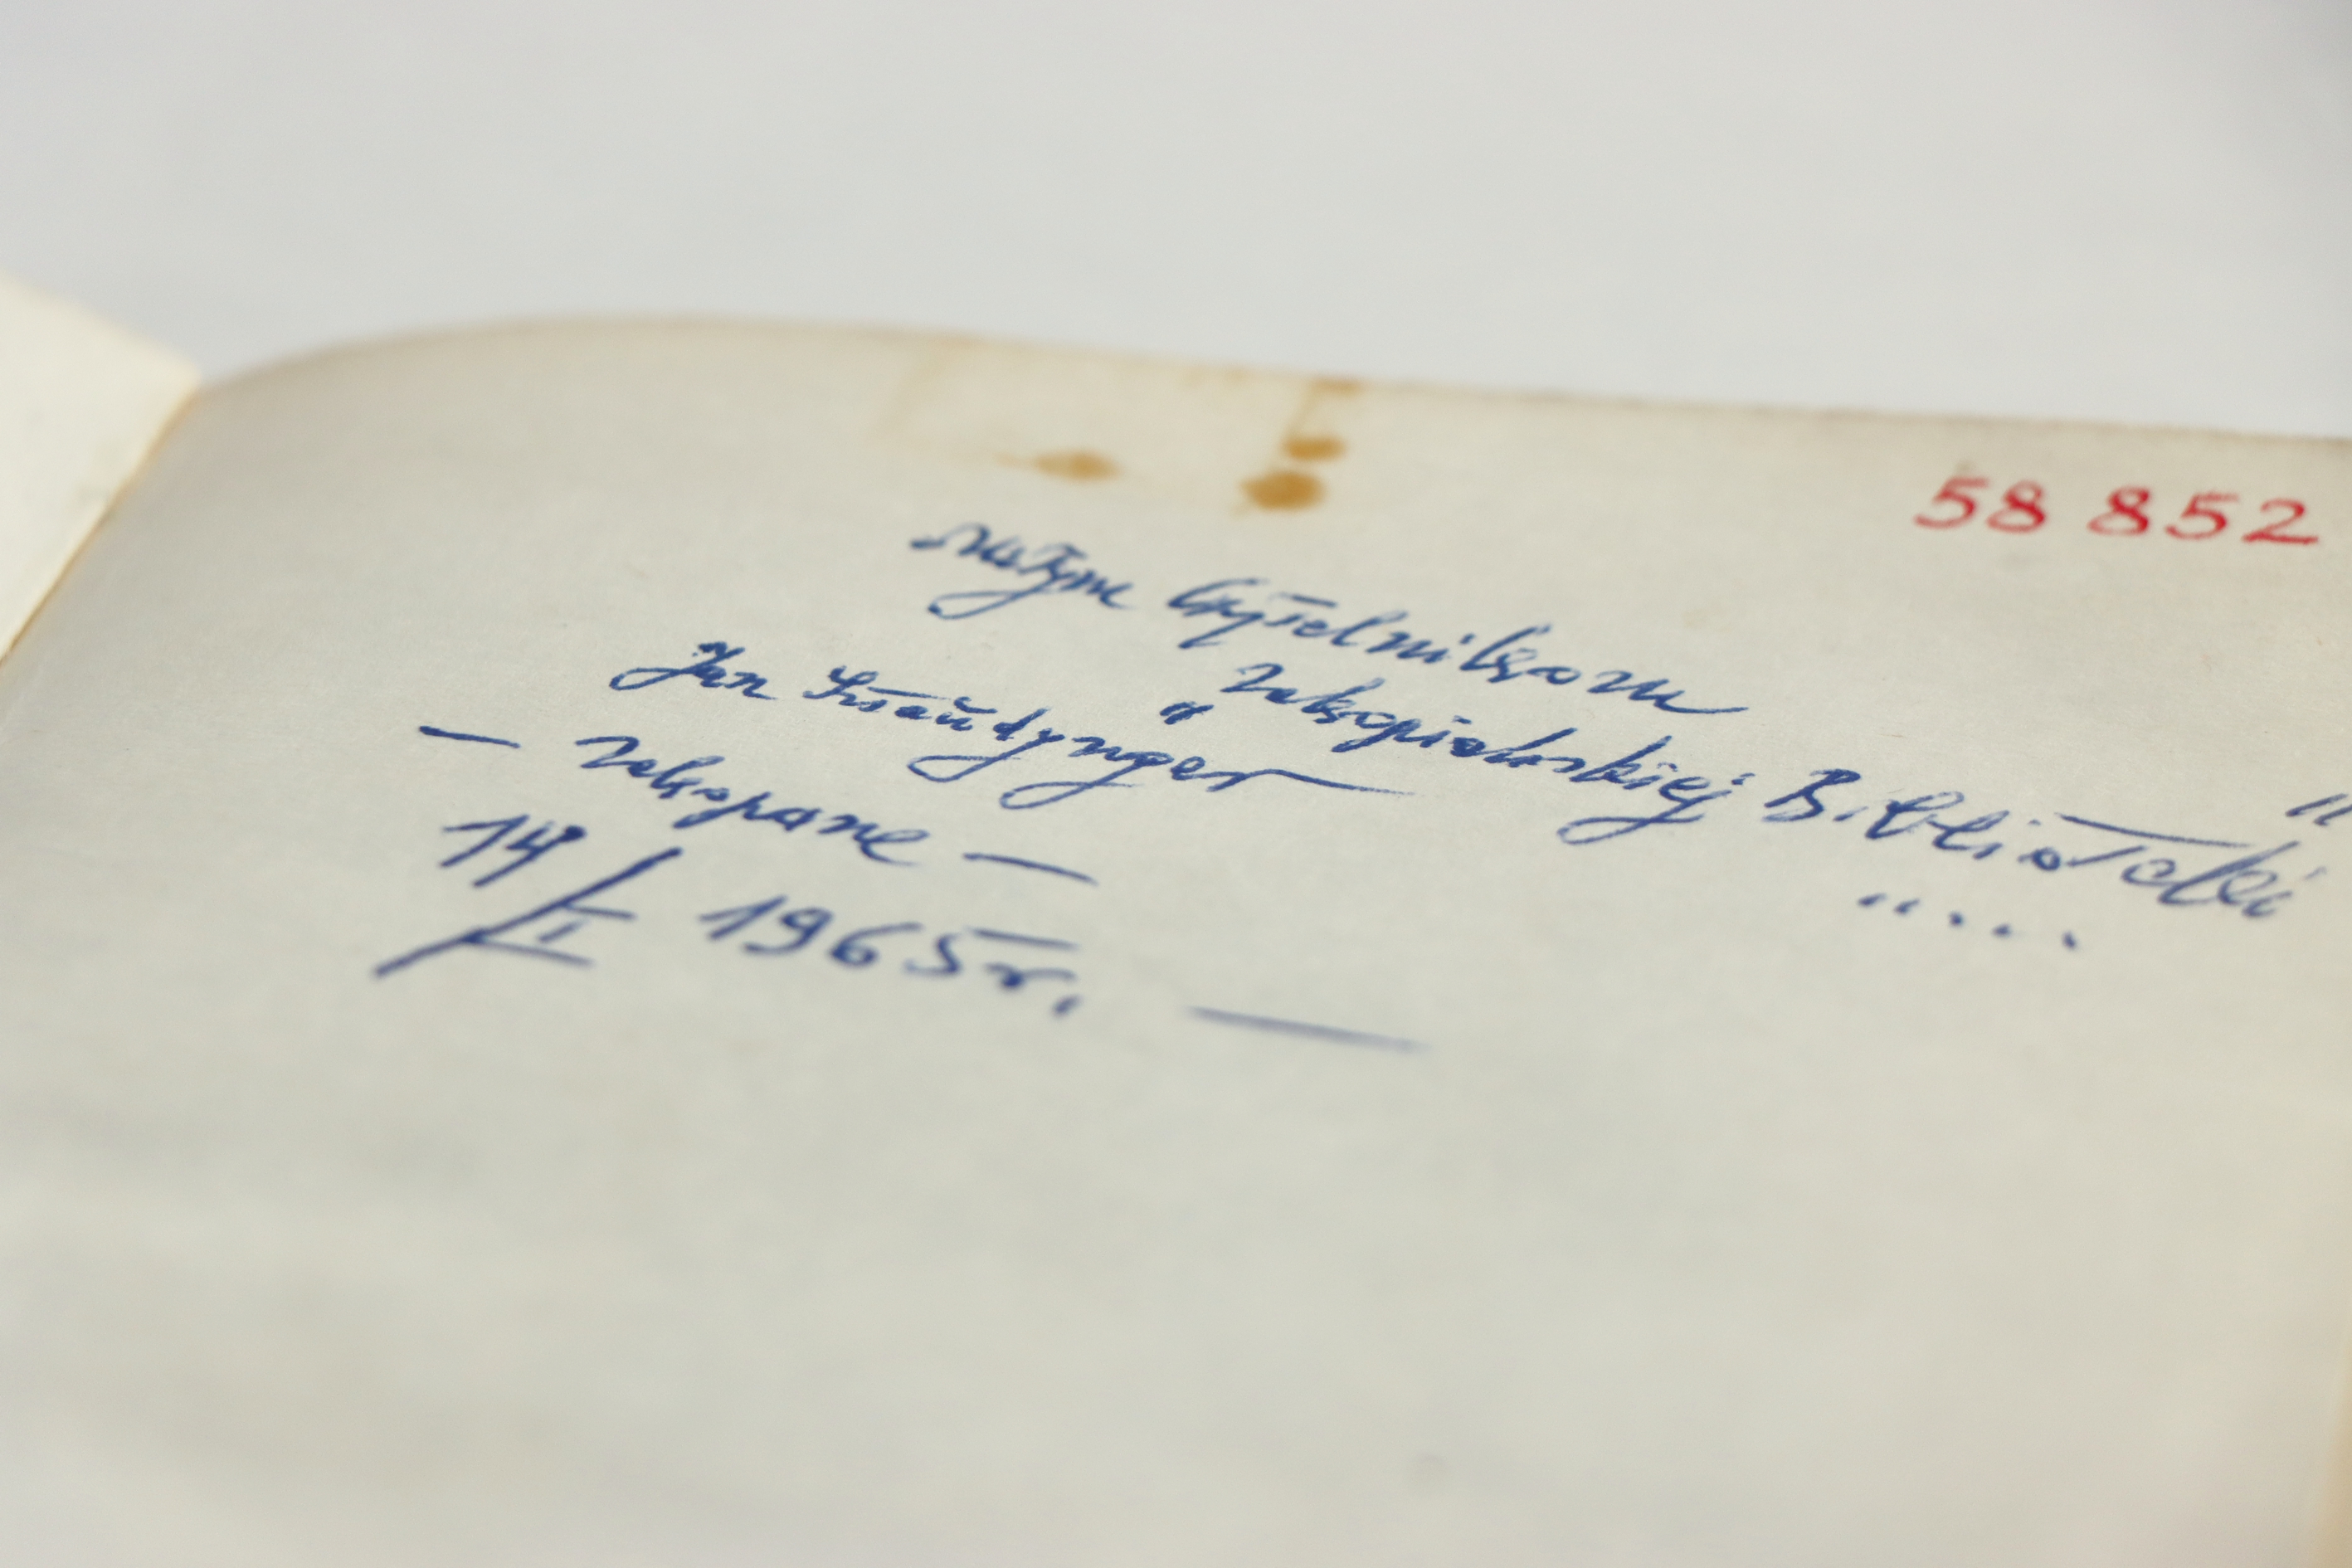 58 852
Miłym Czytelnikom
"Zakopiańskiej Biblioteki"
Jan Sztaudynger
— Zakopane —
14/I 1965 r. —